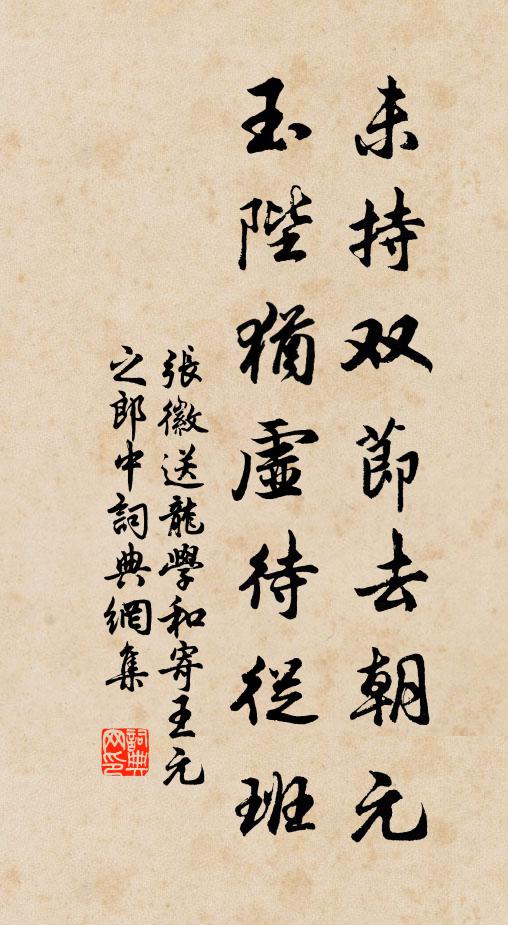 未持双節去朝元
玉陛猶虛待從班
張徽送龍學和寄王元
之郎中詞典網集
詞典
网印